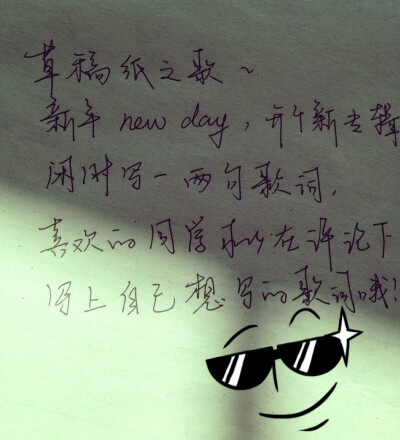 草稿纸之歌~
新年 new day，开个新专辑
闲时写一两句歌词，
喜欢的同学可以在评论下
写上自己想写的歌词哦!